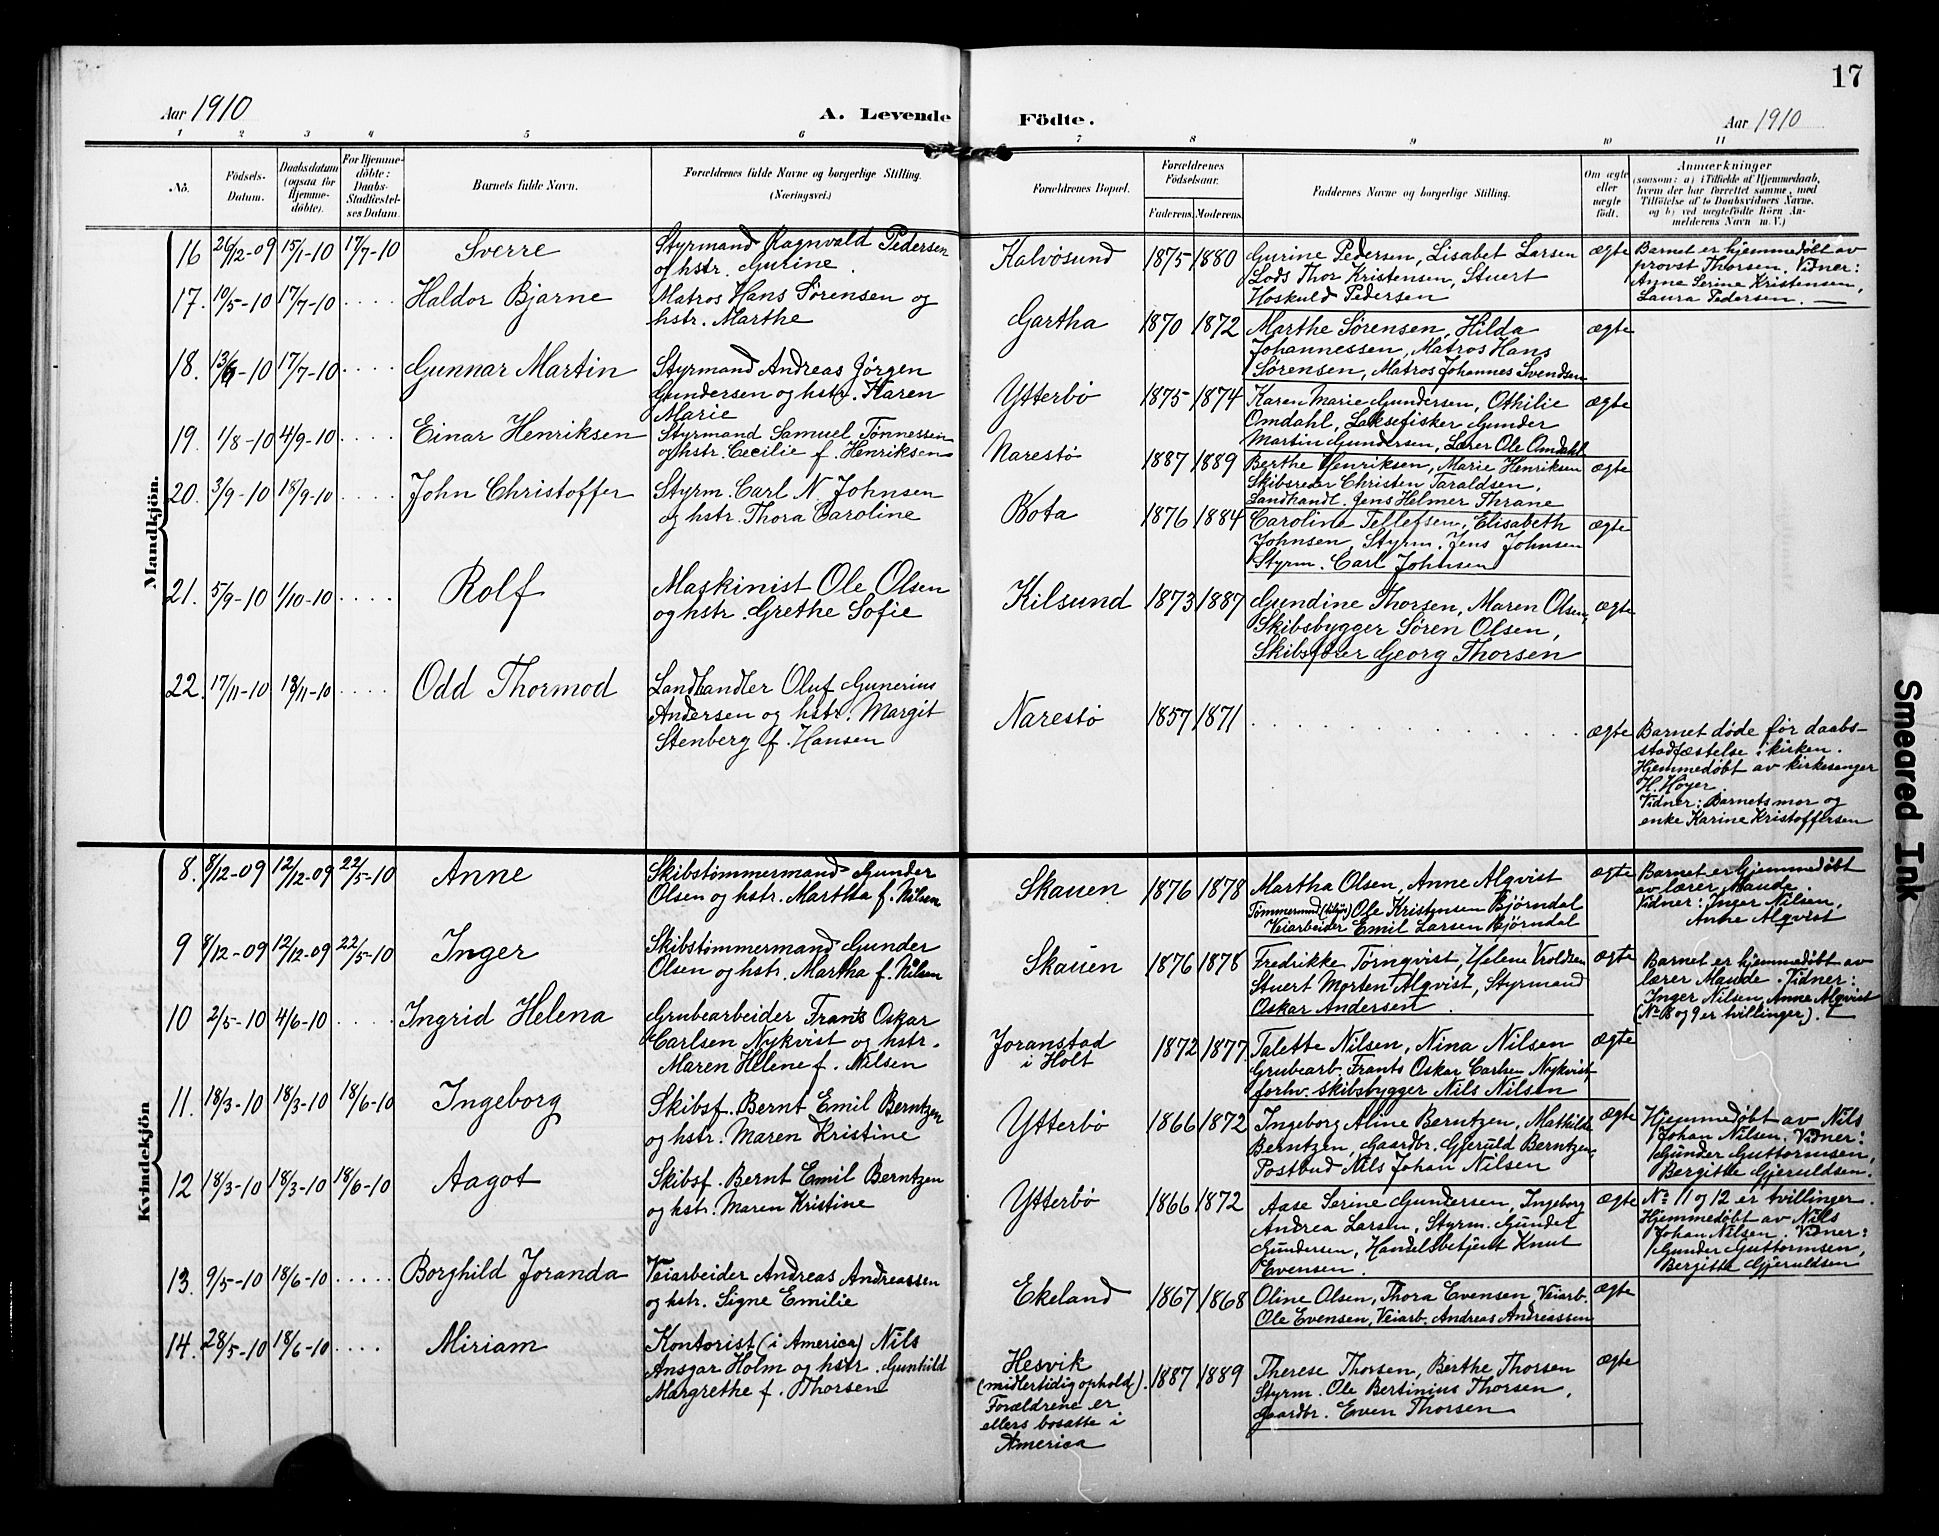 17
Aar 1910
A. Levende
Födte.
Aar 1910
1 2 3 4 5 6 7 8 9 10 11
No.
Födsels-
Datum.
Daabsdatum
(ogsaa for
Hjemme-
döbte).
For Hjemme-
döbte:
Daabs-
Stadfæstel-
ses Datum.
Barnets fulde Navn.
Forældrenes fulde Navne og borgerlige Stilling.
(Næringsvei.)
Forældrenes Bopæl.
Forældrenes
Födselsaar.
Faderens. Moderens.
Faddernes Navne og borgerlige Stilling.
Om ægte
eller
uægte
födt.
Anmærkninger
(saasom: a) i Tilfælde af Hjemmedaab,
hvem der har forrettet samme, med
Tilföielse af to Daabsvidners Navne,
og b) ved uægtefödte Börn An-
melderens Navn m. V.)
Mandkjön.
16 26/12-09 15/1-10 17/7-10 Sverre
Styrmand Ragnvald Pedersen
og hstr. Gurine.
Kalvøsund 1875 1880
Gurine Pedersen, Lisabet Larsen
Lods Thor Kristensen, Stuert
Hoskuld Pedersen
ægte
Barnet er hjemmedøbt av
provst Thorsen. Vidner:
Anne Serine Kristensen,
Laura Pedersen. —
17. 10/5-10 17/7-10 .... Haldor Bjarne
Matros Hans Sørensen og
hstr. Marthe
Gartha 1870 1872
Marthe Sørensen, Hilda
Johannessen, Matros Hans
Sørensen, Matros Johannes Svendsen
ægte
18. 13/6-10 17/7-10 .... Gunnar Martin
Styrmand Andreas Jørgen
Gundersen og hstr. Karen
Marie
Ytterbø 1875 1874
Karen Marie Gundersen, Othilie
Omdahl, Laksefisker Gunder
Martin Gundersen, Lærer Ole Omdahl
ægte
19. 1/8-10 4/9-10 .... Einar Henriksen
Styrmand Samuel Tønnessen
og hstr. Cecilie f. Henriksen
Narestø 1887 1889
Berthe Henriksen, Marie Henriksen
Skibsreder Christen Taraldsen,
Landhandl. Jens Helmer Thrane
ægte
20. 3/9-10 18/9-10 .... John Christoffer
Styrm. Carl N. Johnsen
og hstr. Thora Caroline
Bota 1876 1884
Caroline Tellefsen, Elisabeth
Johnsen, Styrm. Jens Johnsen
Styrm. Carl Johnsen
ægte
21. 5/9-10 1/10-10 .... Rolf
Maskinist Ole Olsen
og hstr. Grethe Sofie
Kilsund 1873 1887
Gundine Thorsen, Maren Olsen,
Skibsbygger Søren Olsen,
Skibsfører Georg Thorsen
ægte
22. 17/11-10 18/11-10 .... Odd Thormod
Landhandler Oluf Gunerius
Andersen og hstr. Margit
Stenberg f. Hansen
Narestø 1857 1871
ægte
Barnet døde før daabs-
stadfæstelse i kirken.
Hjemmedøbt av kirkesanger
H. Høyer.
Vidner: Barnets mor og
enke Karine Kristoffersen
Kvindekjön
8. 8/12-09 12/12-09 22/5-10 Anne
Skibstømmermand Gunder
Olsen og hstr. Martha f. Nilsen
Skauen 1876 1878
Martha Olsen, Anne Alqvist
Tømmermand Ole Kristensen Bjørndal
Veiarbeider Emil Larsen Bjørndal
ægte
Barnet er hjemmedøbt
av lærer Maude.
Vidner: Inger Nilsen,
Anne Alqvist
9 8/12-09 12/12-09 22/5-10 Inger
Skibstømmermand Gunder
Olsen og hstr. Martha f. Nilsen
Skauen 1876 1878
Fredrikke Tørnqvist, Helene Vroldsen
Stuert Morten Alqvist, Styrmand
Oskar Andersen.
ægte
Barnet er hjemmedøbt av
lærer Maude. Vidner:
Inger Nilsen, Anne Alqvist
(No 8 og 9 er tvillinger).
10 2/5-10 4/6-10 .... Ingrid Helena
Grubearbeider Frants Oskar
Carlsen Nykvist og hstr.
Maren Helene f. Nilsen
Joranstad
i Holt
1872 1877
Talette Nilsen, Nina Nilsen
Grubearb. Frants Oskar Carlsen Nykvist,
forhv. skibsbygger Nils Nilsen
ægte
11. 18/3-10 18/3-10 18/6-10 Ingeborg
Skibsf. Bernt Emil Berntzen
og hstr. Maren Kristine
Ytterbø 1866 1872
Ingeborg Aline Berntzen, Mathilde
Berntzen, Gaardbr. Gjeruld Berntzen,
Postbud Nils Johan Nilsen
ægte
Hjemmedøbt av Nils
Johan Nilsen. Vidner:
Gunder Guttormsen,
Bergitte Gjeruldsen.
12 18/3-10 18/3-10 18/6-10 Aagot
Skibsf. Bernt Emil Berntzen
og hstr. Maren Kristine
Ytterbø 1866 1872
Aase Serine Gundersen, Ingeborg
Andrea Larsen, Styrm. Gunder
Gundersen, Handelsbetjent Knut
Evensen.
ægte
No 11 og 12 er tvillinger.
Hjemmedøbt av Nils
Johan Nilsen. Vidner:
Gunder Guttormsen,
Bergitte Gjeruldsen
13. 9/5-10 18/6-10 ..... Borghild Joranda
Veiarbeider Andreas Andreassen
og hstr. Signe Emilie
Ekeland 1867 1868
Oline Olsen, Thora Evensen, Veiarb.
Ole Evensen, Veiarb. Andreas Andreassen
ægte
14. 28/5-10 18/6-10 .... Miriam
Kontorist (i America) Nils
Ansgar Holm og hstr. Gunhild
Margrethe f. Thorsen
Hesvik
(midlertidig ophold).
Forældrene er
ellers bosatte i
America
1887 1889
Therese Thorsen, Berthe Thorsen
Styrm. Ole Bertinius Thorsen,
Gaardbr. Even Thorsen
ægte
Smeared Ink